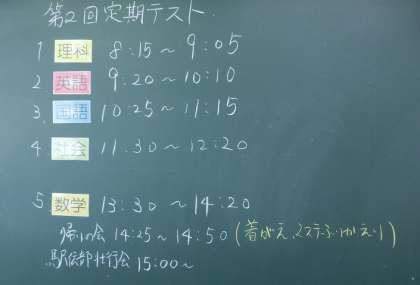 第2回定期テスト
1 理科 8:15〜9:05
2. 英語 9:20〜10:10
3. 国語 10:25〜11:15
4 社会 11:30〜12:20
5 数学 13:30〜14:20
帰りの会 14:25〜14:50(着がえ、
駅伝部壮行会 15:00〜